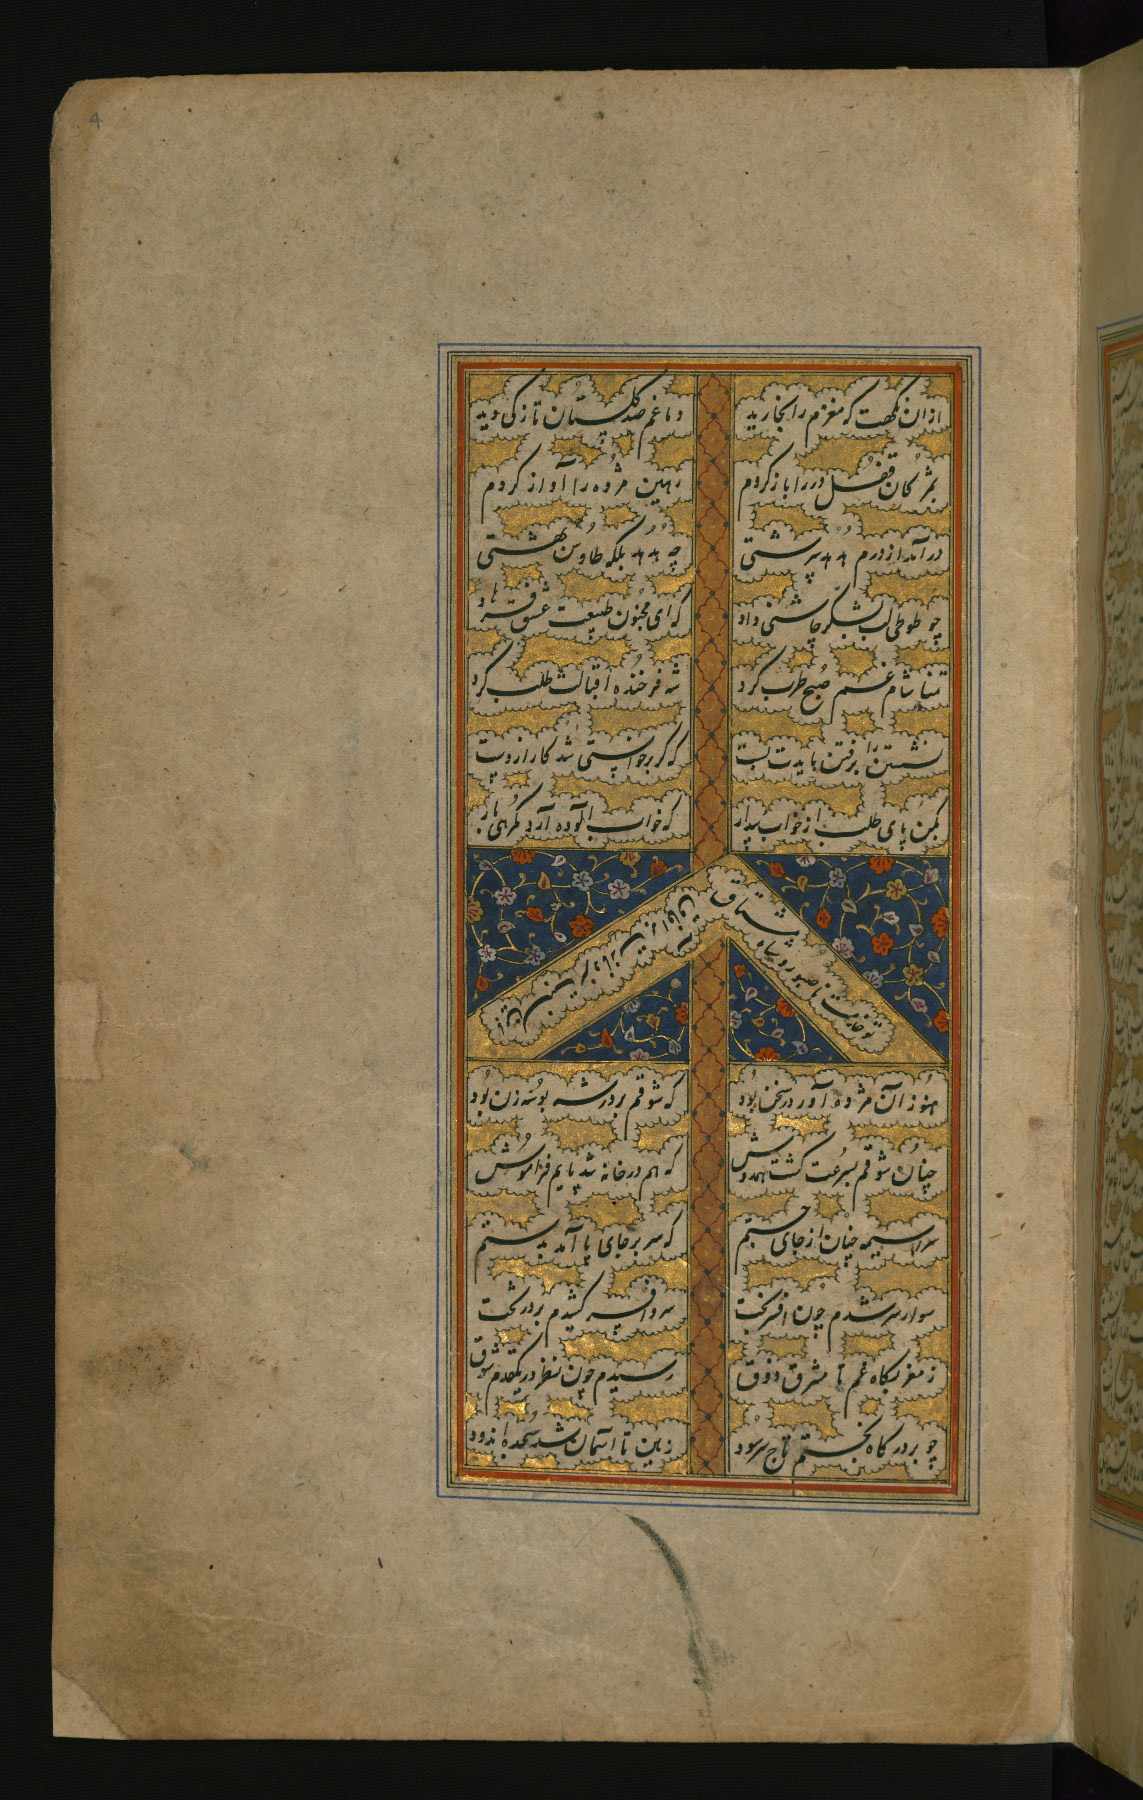 ازان نکهت که مغزم را بخارید دماغم صد گلستان تازگی دید
بمژگان قفل در را باز کردم رهین مژده را آواز کردم
درآمد از درم هدهد سرشتی چه هدهد بلکه طاوس بهشتی
چو طوطی لب بشکر چاشنی داد که ای مجنون طبیعت عشق فرهاد
تمنا شام غم صبح طرب کرد شه فرخنده اقبالت طلب کرد
نشستن را برفتن بایدت بست که گر برخواستی شد کار از دست
بکن پای طلب از خواب بیدار که خواب آلوده آرد گمرهی بار
توخانیت ناصبور و شاه مشتاق
هنوز آن مژده آور در سخن بود که شوقم بر در شه بوسه زن بود
چنان شوقم بسرعت گشت همدوش که هم در خانه شد پایم فراموش
سراسیمه چنان از جای جستم که سر بر جای پا آمد بدستم
سوار سر شدم چون افسر بخت سر و افسر کشیدم بر در تخت
ز مغربگاه غم تا مشرق ذوق رسیدم چون نظر در یکقدم شوق
چو بر درگاه بختم تاج سر سود زمین تا آسمان شد سجده اندود